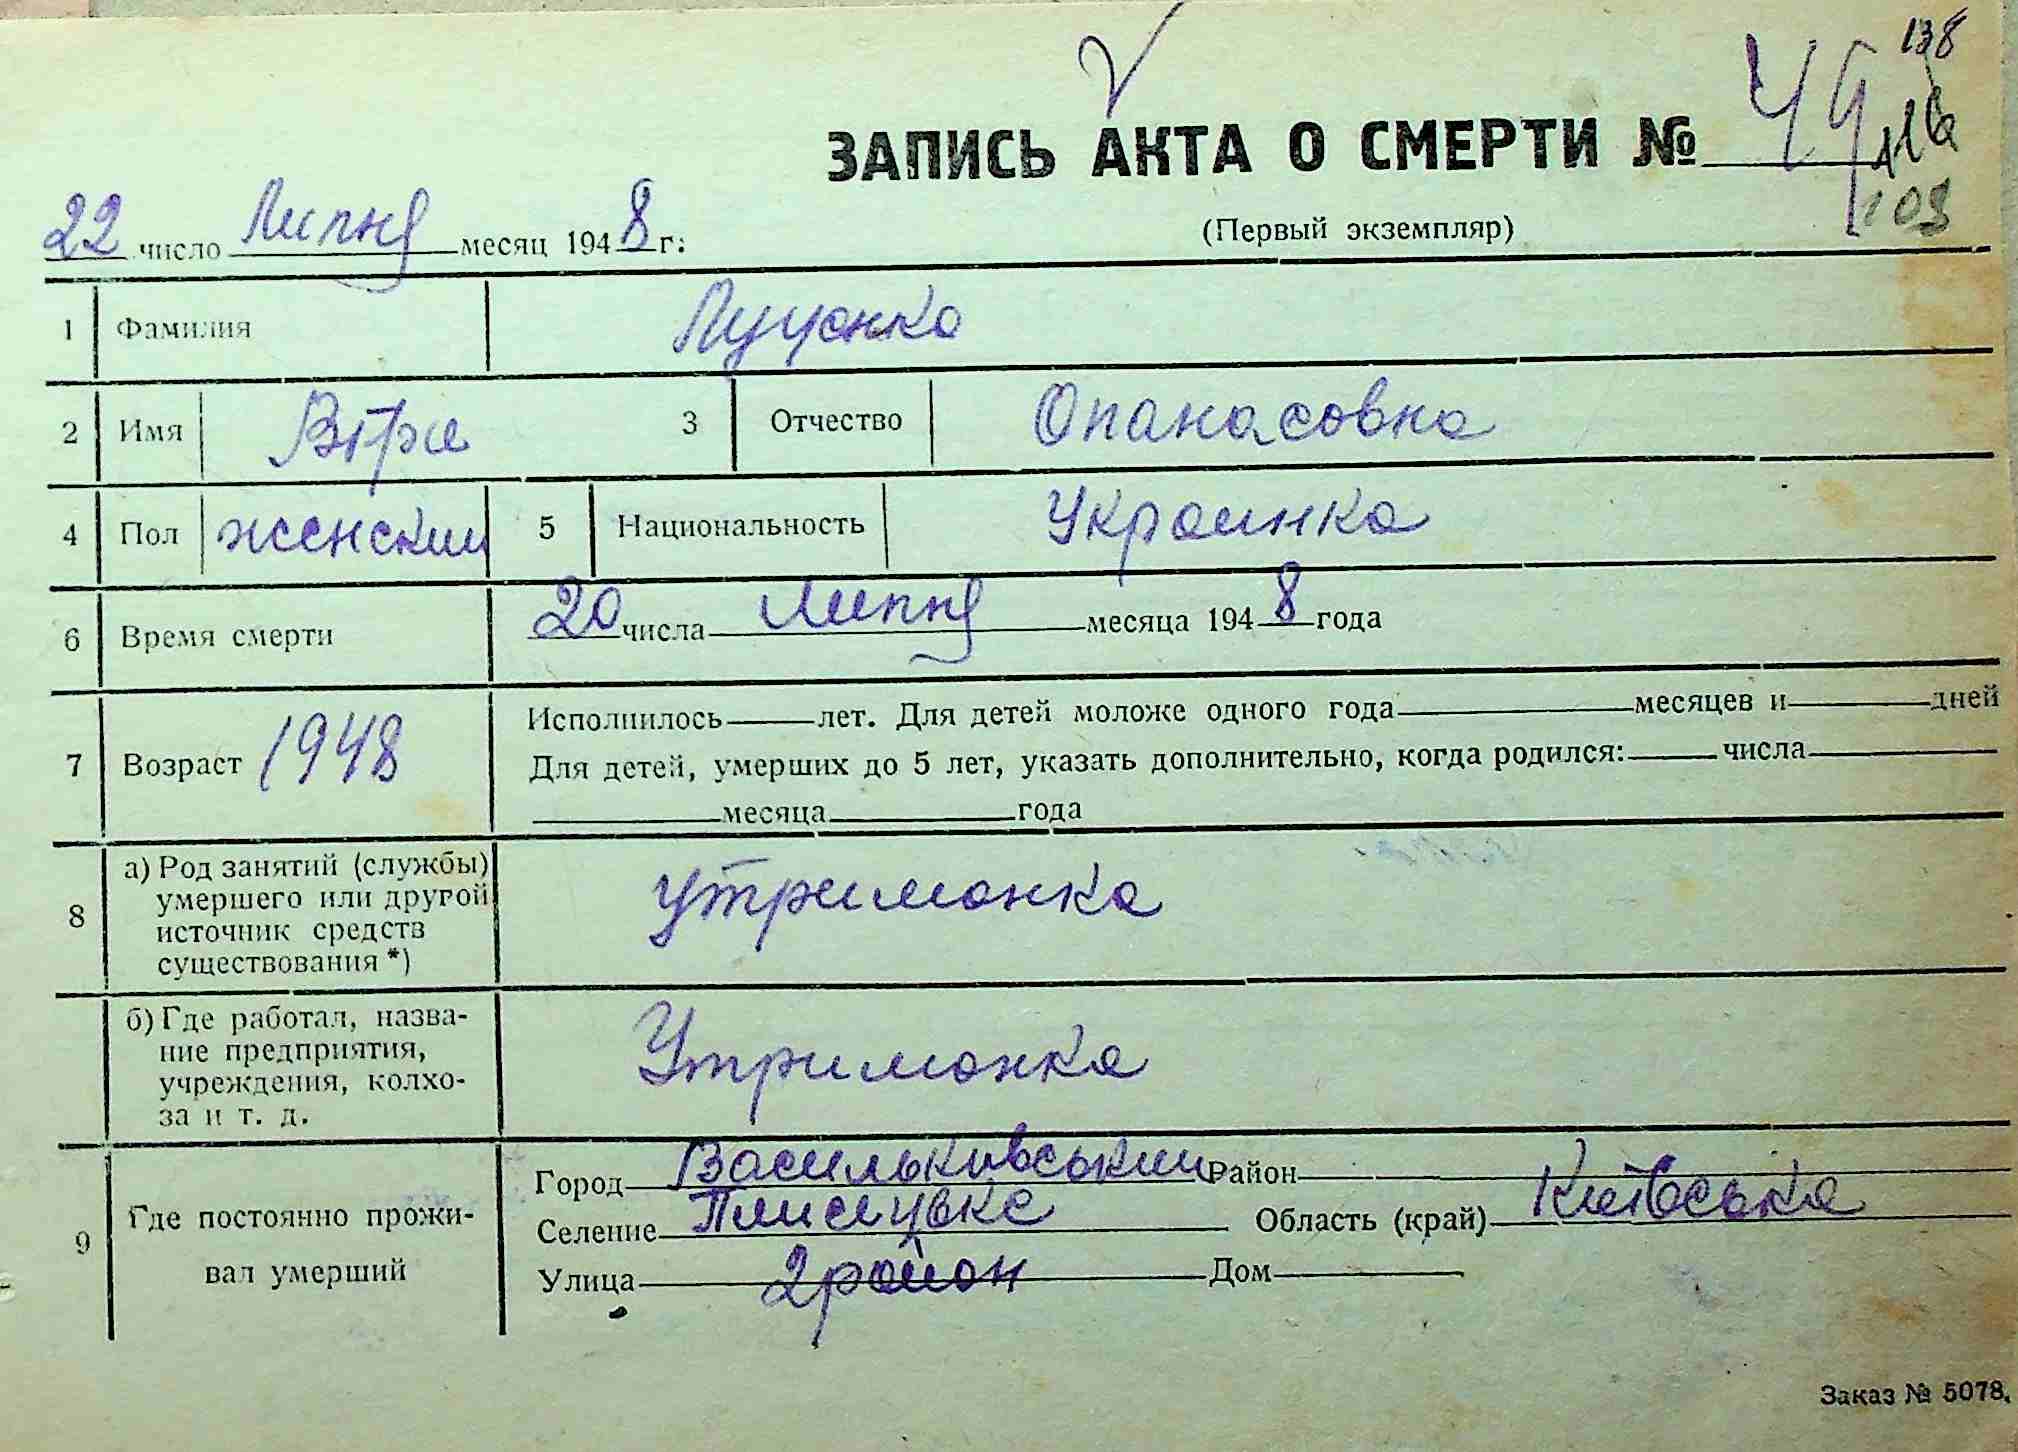 138
ЗАПИСЬ АКТА О СМЕРТИ № 49
116
109
22 число Липня месяц 1948 г.
(Первый экземпляр)
1 Фамилия Луценко
2 Имя 3 Отчество Опанасовна
4 Пол женский 5 Национальность Украинка
6 Время смерти 20 числа Липня месяца 1948 года
7 Возраст 1948 Исполнилось лет. Для детей моложе одного года месяцев и дней
Для детей, умерших до 5 лет, указать дополнительно, когда родился: числа
месяца года
8 а) Род занятий (службы)
умершего или другой
источник средств
существования *)
утриманка
б) Где работал, назва-
ние предприятия,
учреждения, колхо-
за и т. д.
Утриманка
9 Где постоянно прожи-
вал умерший
Город Васильківський Район
Селение Область (край) Київська
Улица 2 район Дом
Заказ № 5078.